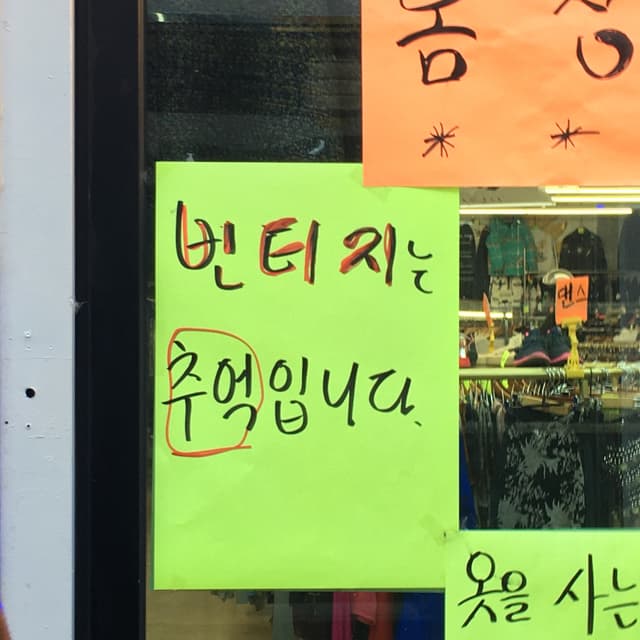 봄
* *
빈티지는
추억입니다.
맨스
옷을 사는